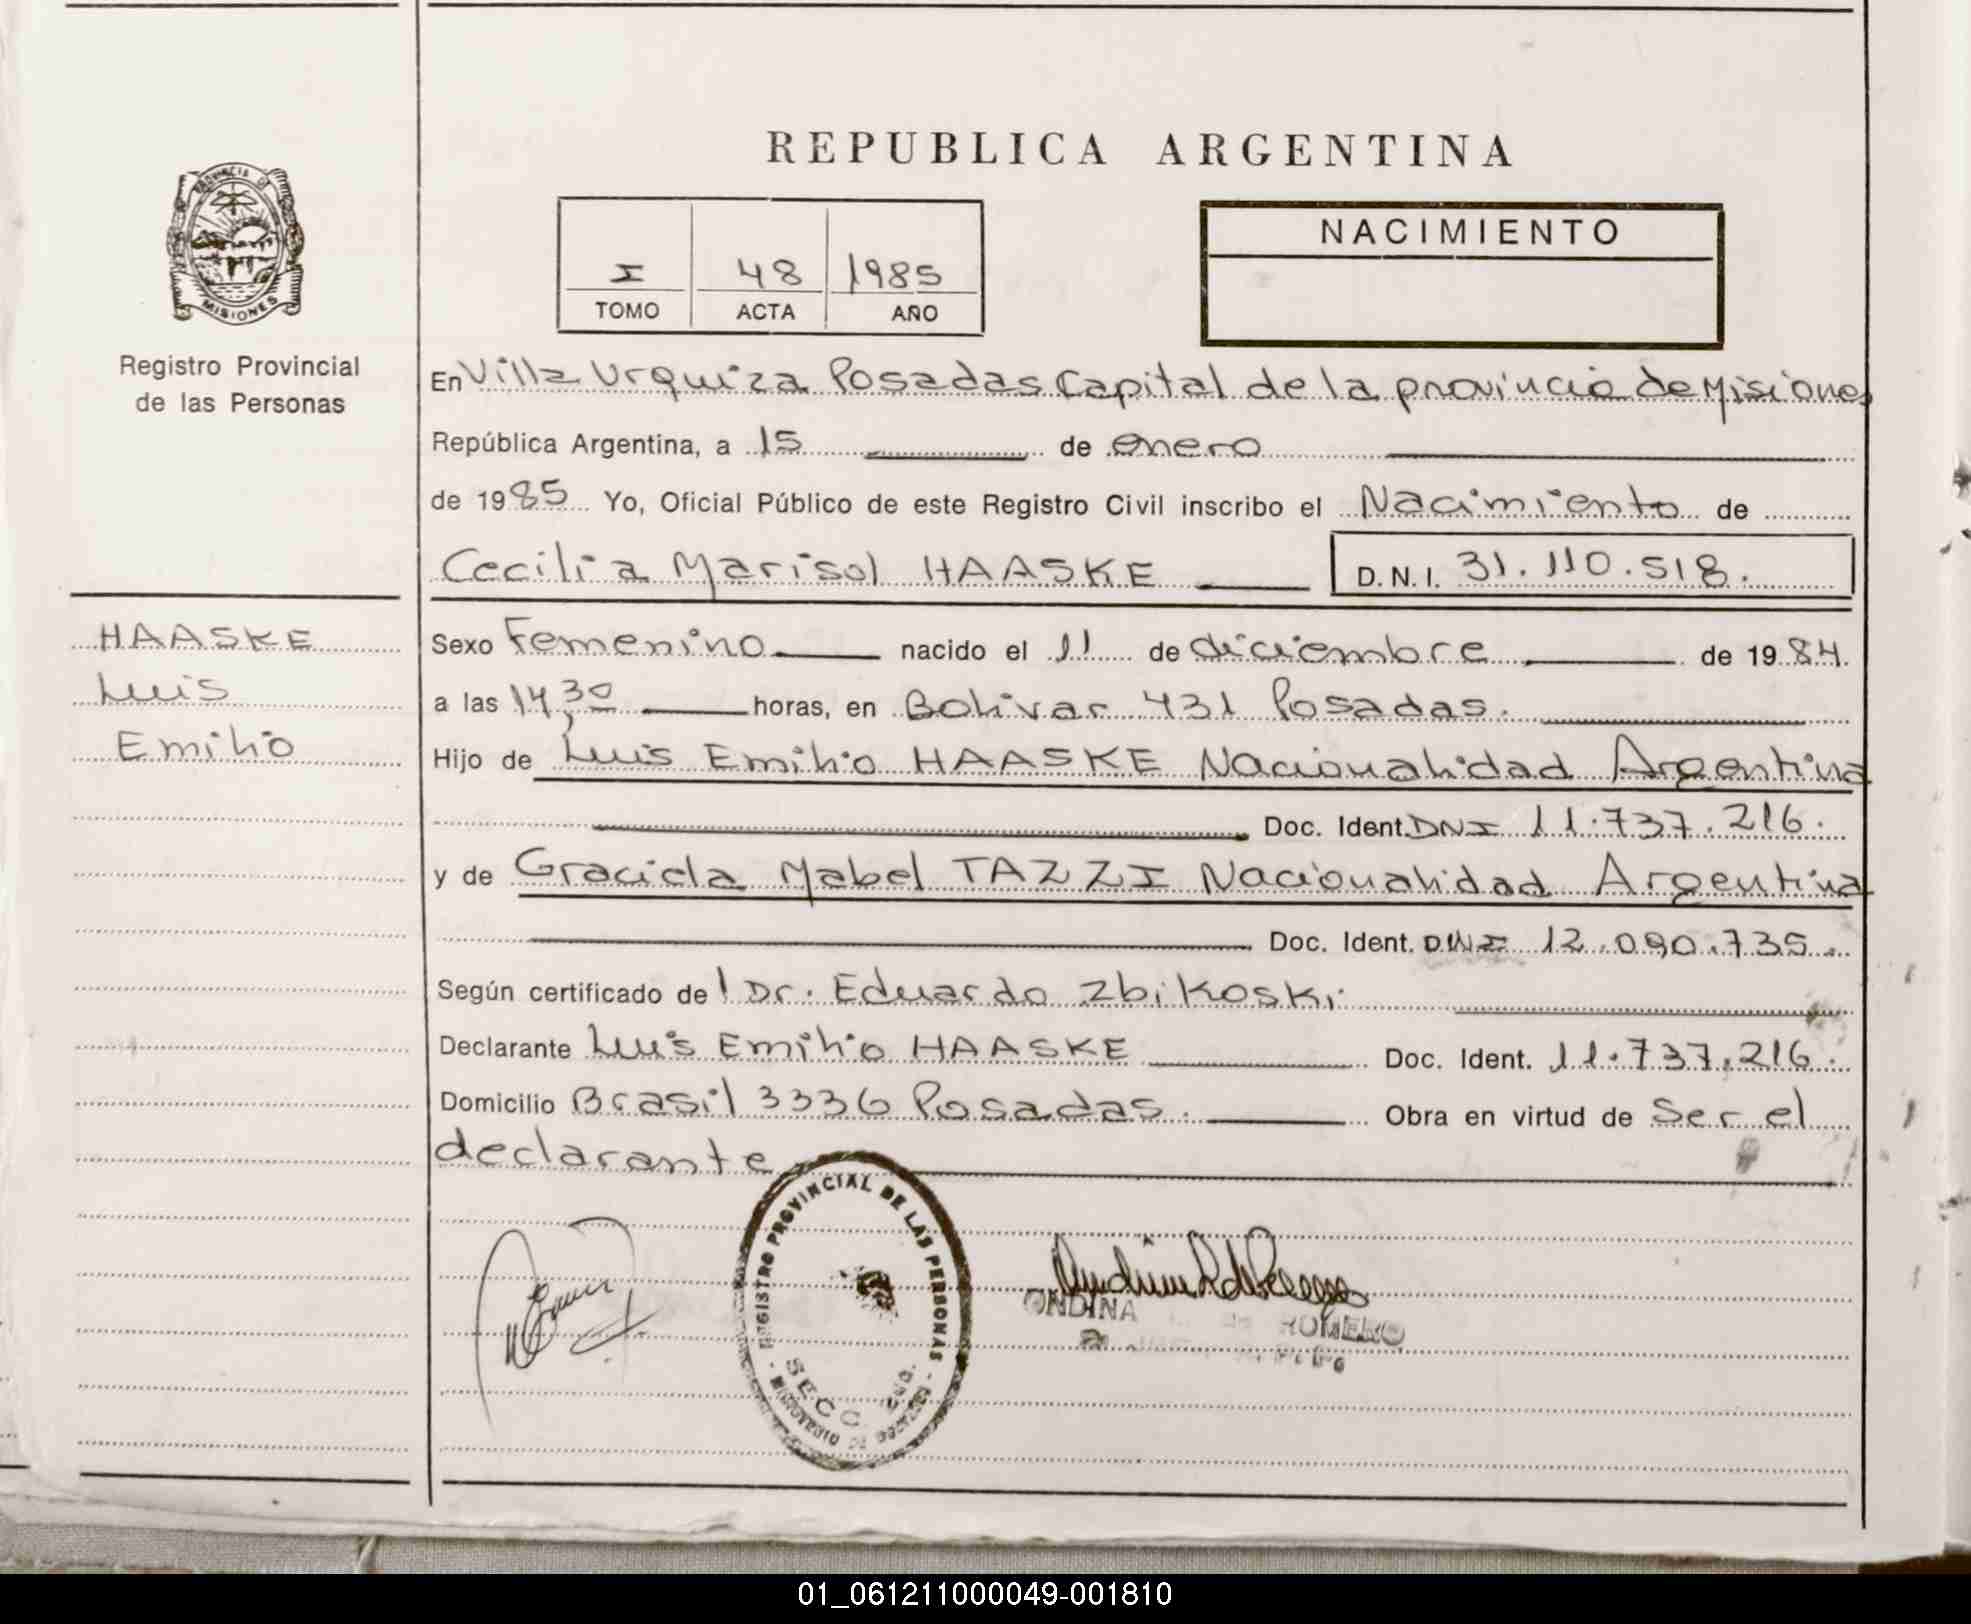 REPUBLICA ARGENTINA
PROVINCIA DE
MISIONES
Registro Provincial
de las Personas
I 48 1985
TOMO ACTA AÑO
NACIMIENTO
En Villa Urquiza Posadas Capital de la provincia de Misiones
República Argentina, a 15 de enero
de 1985 Yo, Oficial Público de este Registro Civil inscribo el Nacimiento de
Cecilia Marisol HAASKE D.N.I. 31.110.518.
HAASKE
Luis
Emilio
Sexo Femenino nacido el 11 de diciembre de 1984.
a las 14,30 horas, en Bolivar 431 Posadas.
Hijo de Luis Emilio HAASKE Nacionalidad Argentina
Doc. Ident. DNI 11.737.216.
y de Graciela Mabel TAZZI Nacionalidad Argentina
Doc. Ident. DNI 12.090.735.
Según certificado del Dr. Eduardo Zbikoski
Declarante Luis Emilio HAASKE Doc. Ident. 11.737.216.
Domicilio Brasil 3336 Posadas. Obra en virtud de Ser el
declarante
REGISTRO PROVINCIAL DE LAS PERSONAS
SECC.
MINISTERIO DE GOBIERNO
ONDINA DE ROMERO
01_061211000049-001810